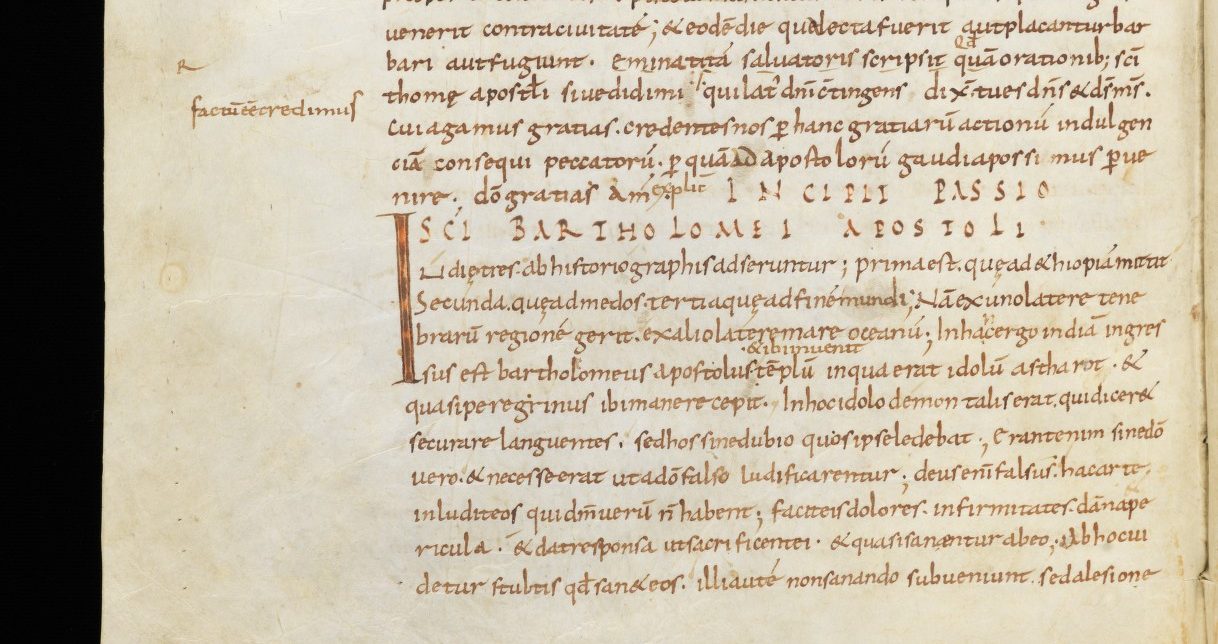 venerit contra civitatē; & eodē die qua lecta fuerit aut placantur bar
bari aut fugiunt. Eminatitā salvatoris scripsit qđ quā orationib; sci
factū eē credimus
thomę apostłi sive didimi qui lat̄ dnī c̄tingens dix̄. tu es dn̄s & ds̄ ms̄.
cui agamus gratias. credentes nos p̱ hanc gratiarū actionū indulgen
ciā consequi peccatorū. p̱ quā ad apostolorū gaudia possimus p̱ve
nire. dō gratias am̄ explic̄ INCIPIT PASSIO
SCĪ BARTHOLOMEI APOSTOLI
INdię tres. ab historiographis adseruntur; prima est. quę ad &hiopiā mittit
Secunda. quę ad medos. tertia quę ad finē mundi; Nā ex uno latere tene
brarū regionē gerit. ex alio latere mare oceanū; In hanc ergo indiā ingres
& ibi invenit
sus est bartholomeus apostolus. tēplū in qua erat idolū astharot. &
quasi peregrinus ibi manere cepit. In hoc idolo demon talis erat. qui dicer&
se curare languentes. sed hos sine dubio quos ipse ledebat; Erant enim sine dō
vero. & necesse erat ut a dō falso ludificarentur; deus enī falsus. hac arte.
inludit eos qui dm̄ verū n̄ habent; facit eis dolores. infirmitates. dāna pe
ricula. & dat responsa ut sacrificent ei. & quasi sanantur ab eo; Ab hoc vi
detur stultis qđ san& eos. illi autē non sanando subveniunt. sed a lesione